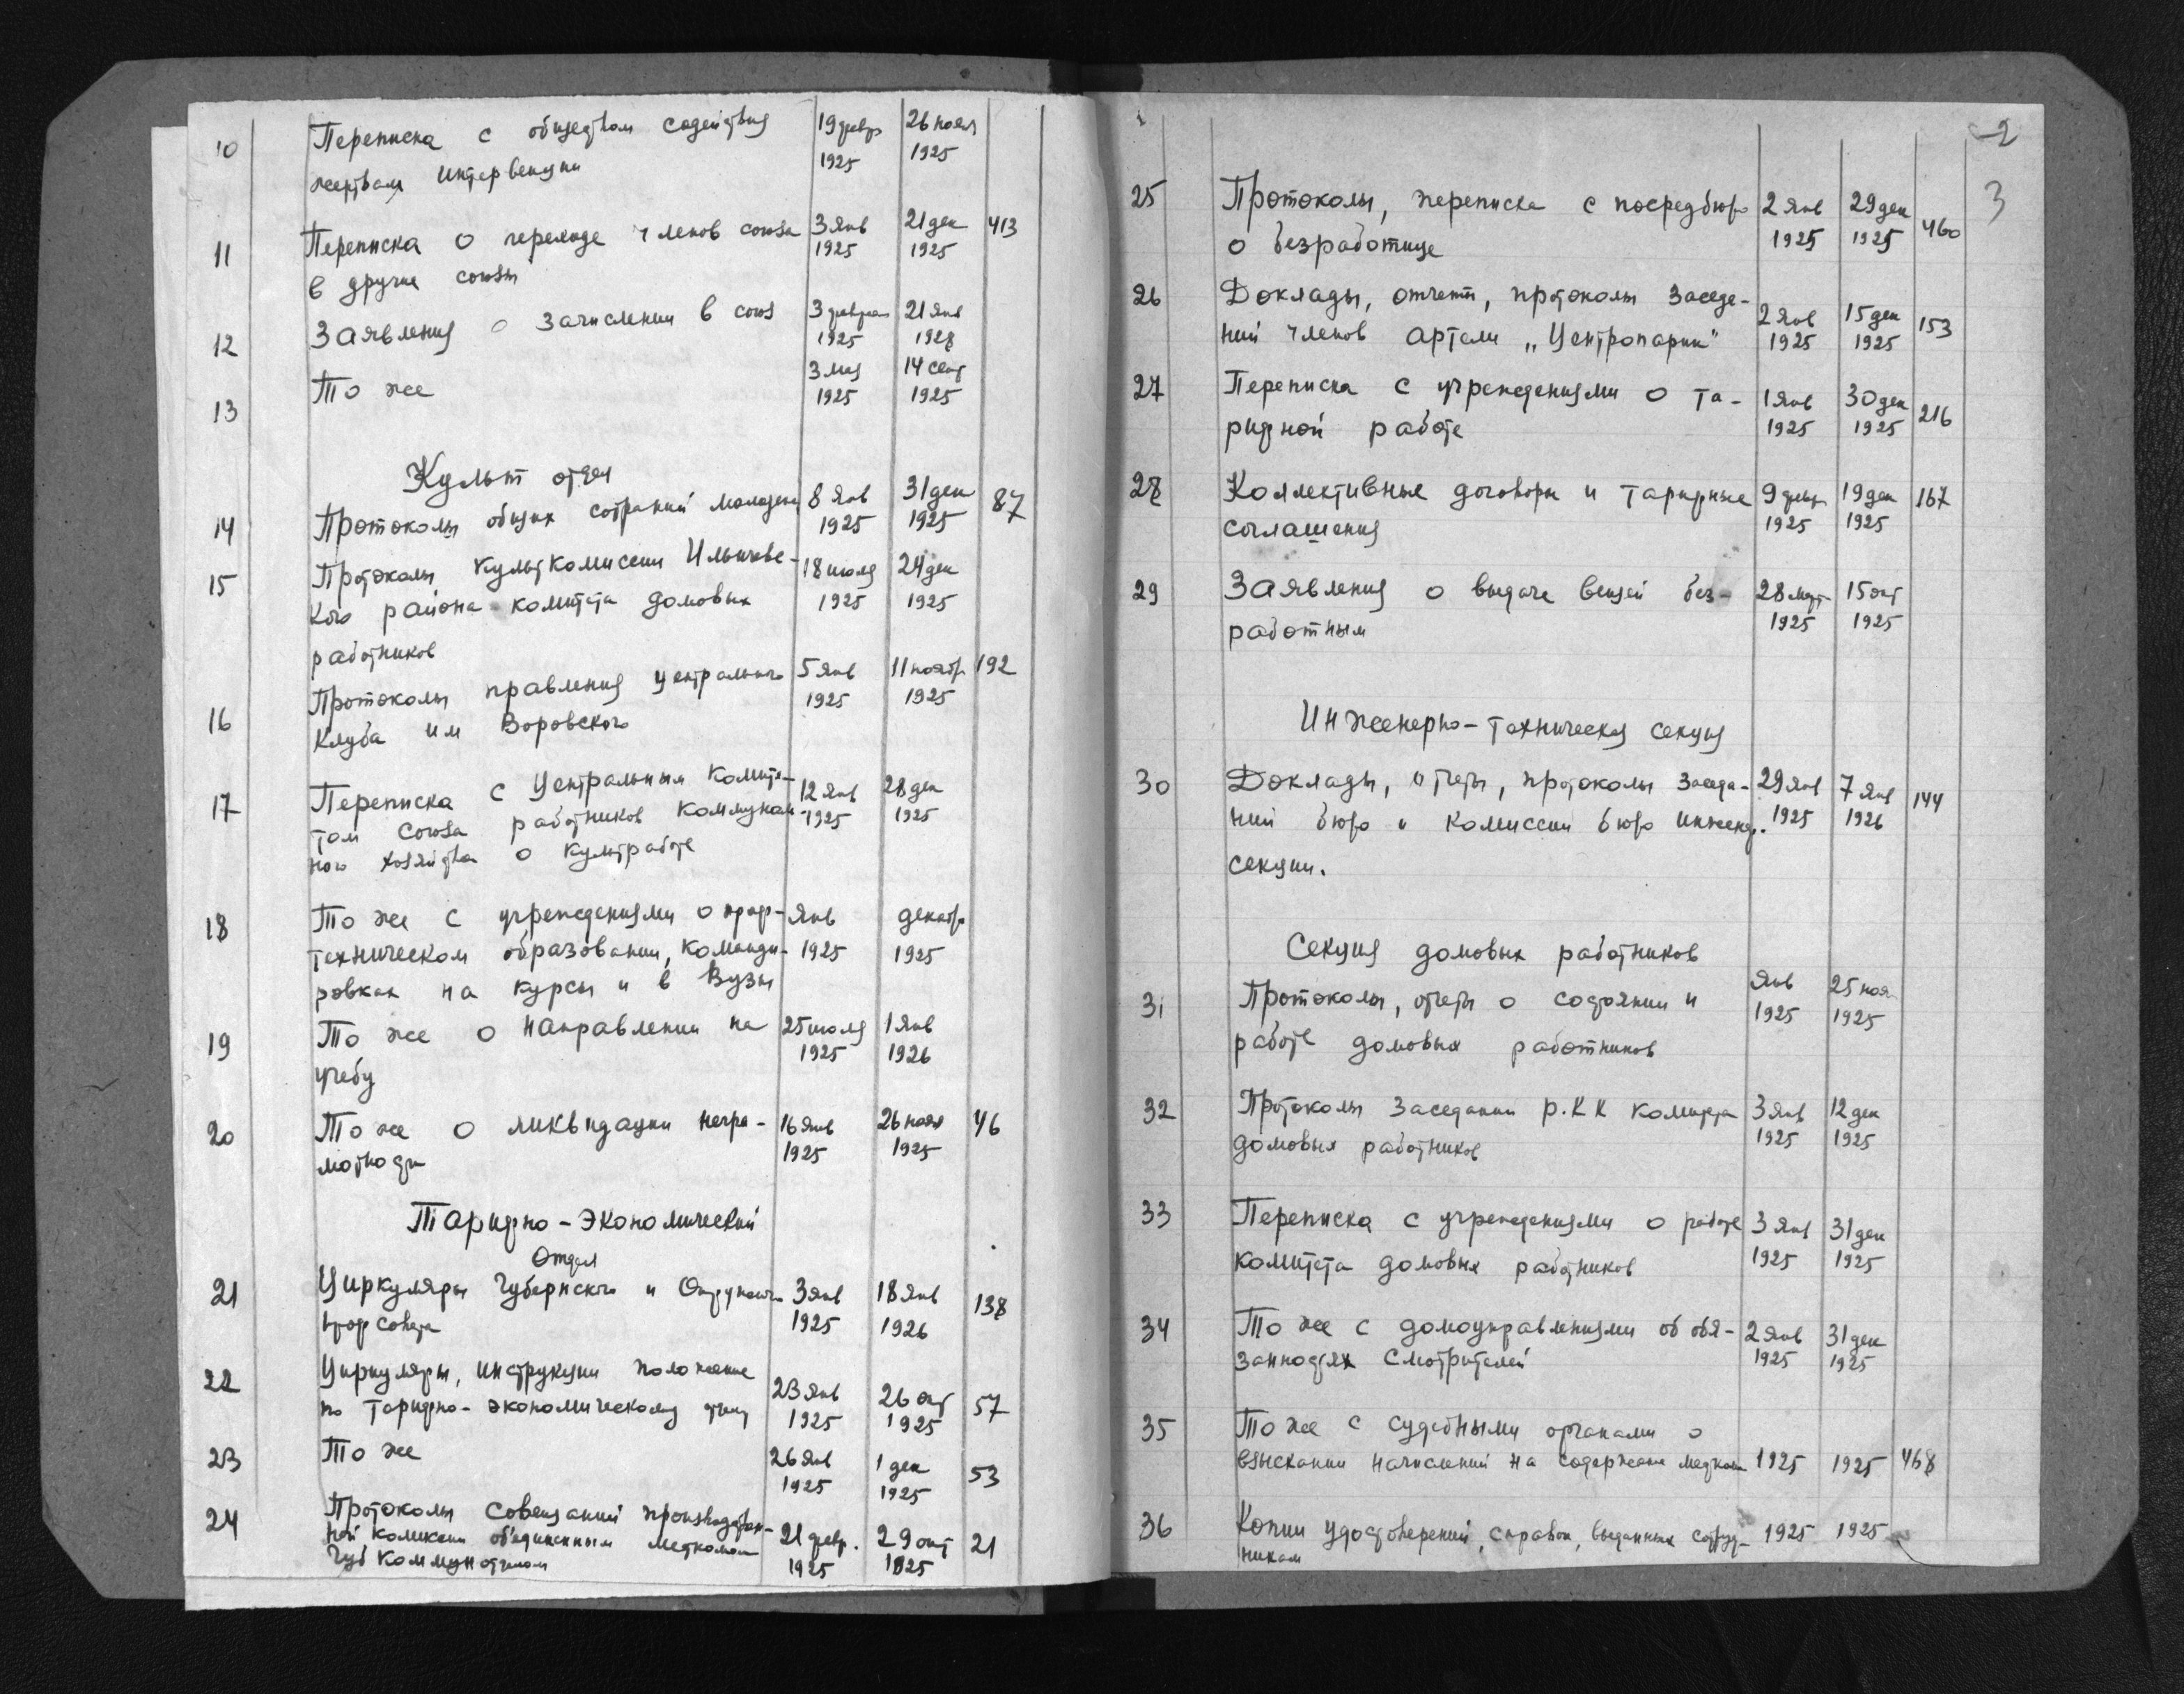 10 Переписка с обществом содействия 19 февр 26 нояб
жертвам интервенции 1925 1925
11 Переписка о переходе членов союза 3 янв 21 дек 413
в другие союзы 1925 1925
12 Заявления о зачислении в союз 3 февраля 21 янв
1925 1928
13 То же 3 мая 14 сент
1925 1925
Культ отдел
14 Протоколы общих собраний молодежи 8 янв 31 дек 87
1925 1925
15 Протоколы культкомиссии Ильичевс-
кого района комитета домовых 18 июля 24 дек
работников 1925 1925
16 Протоколы правления центрального 5 янв 11 ноябр 192
клуба им Воровского 1925 1925
17 Переписка с Центральным Комите-
том союза работников коммуналь- 12 янв 28 дек
ного хозяйства о культработе 1925 1925
18 То же с учреждениями о проф- янв декабр
техническом образовании, команди- 1925 1925
ровках на курсы и в Вузы
19 То же о направлении на 25 июля 1 янв
учебу 1925 1926
20 То же о ликвидации негра- 16 янв 26 нояб 46
мотности 1925 1925
Тарифно-Экономический
Отдел
21 Циркуляры Губернского и Окружного 3 янв 18 янв 138
профсовета 1925 1926
22 Циркуляры, инструкции положение
по тарифно-экономическому отделу 23 янв 26 окт 57
1925 1925
23 То же 26 янв 1 дек 53
1925 1925
24 Протоколы совещаний производствен-
ной комиссии объединенным месткомом 21 февр. 29 окт 21
Губкоммунотделом 1925 1925
2
3
25 Протоколы, переписка с посредбюро 2 янв 29 дек 460
о безработице 1925 1925
26 Доклады, отчеты, протоколы заседа-
ний членов артели „Центропарик" 2 янв 15 дек 153
1925 1925
27 Переписка с учреждениями о та- 1 янв 30 дек 216
рифной работе 1925 1925
28 Коллективные договоры и тарифные 9 февр 19 дек 167
соглашения 1925 1925
29 Заявления о выдаче вещей без- 28 март 15 окт
работным 1925 1925
Инженерно-техническая секция
30 Доклады, отчеты, протоколы заседа- 29 янв 7 янв 144
ний бюро и комиссии бюро инженер. 1925 1926
секции.
Секция домовых работников
31 Протоколы, отчеты о состоянии и янв 25 нояб
работе домовых работников 1925 1925
32 Протоколы заседании Р.К К комитета 3 янв 12 дек
домовых работников 1925 1925
33 Переписка с учреждениями о работе 3 янв 31 дек
комитета домовых работников 1925 1925
34 То же с домоуправлениями об обя- 2 янв 31 дек
занностях смотрителей 1925 1925
35 То же с судебными органами о
взыскании начислений на содержание месткома 1925 1925 468
36 Копии удостоверений, справок, выданных сотруд- 1925 1925
никам